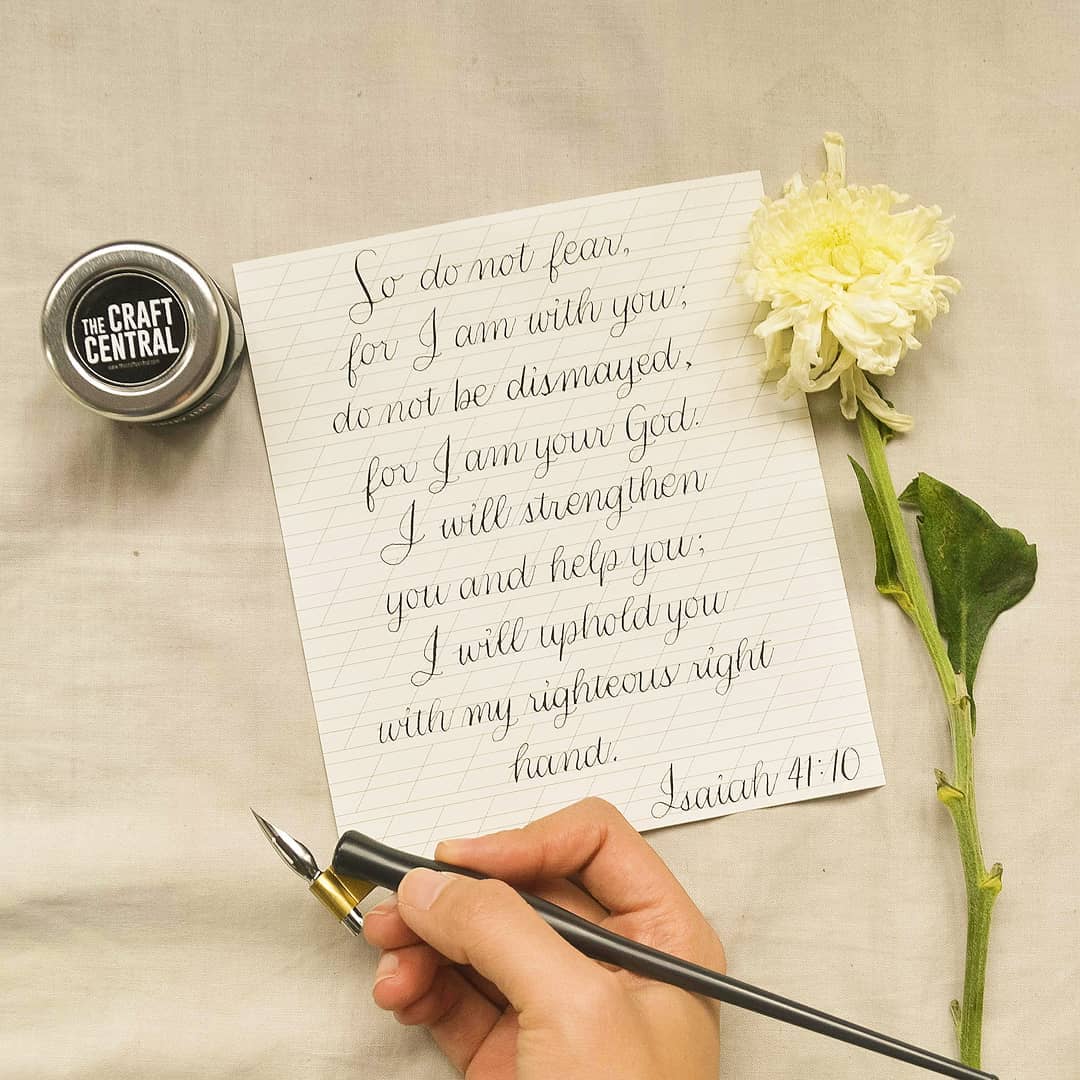 THE CRAFT
CENTRAL
So do not fear,
for I am with you;
do not be dismayed,
for I am your God.
I will strengthen
you and help you;
I will uphold you
with my righteous right
hand.
Isaiah 41:10